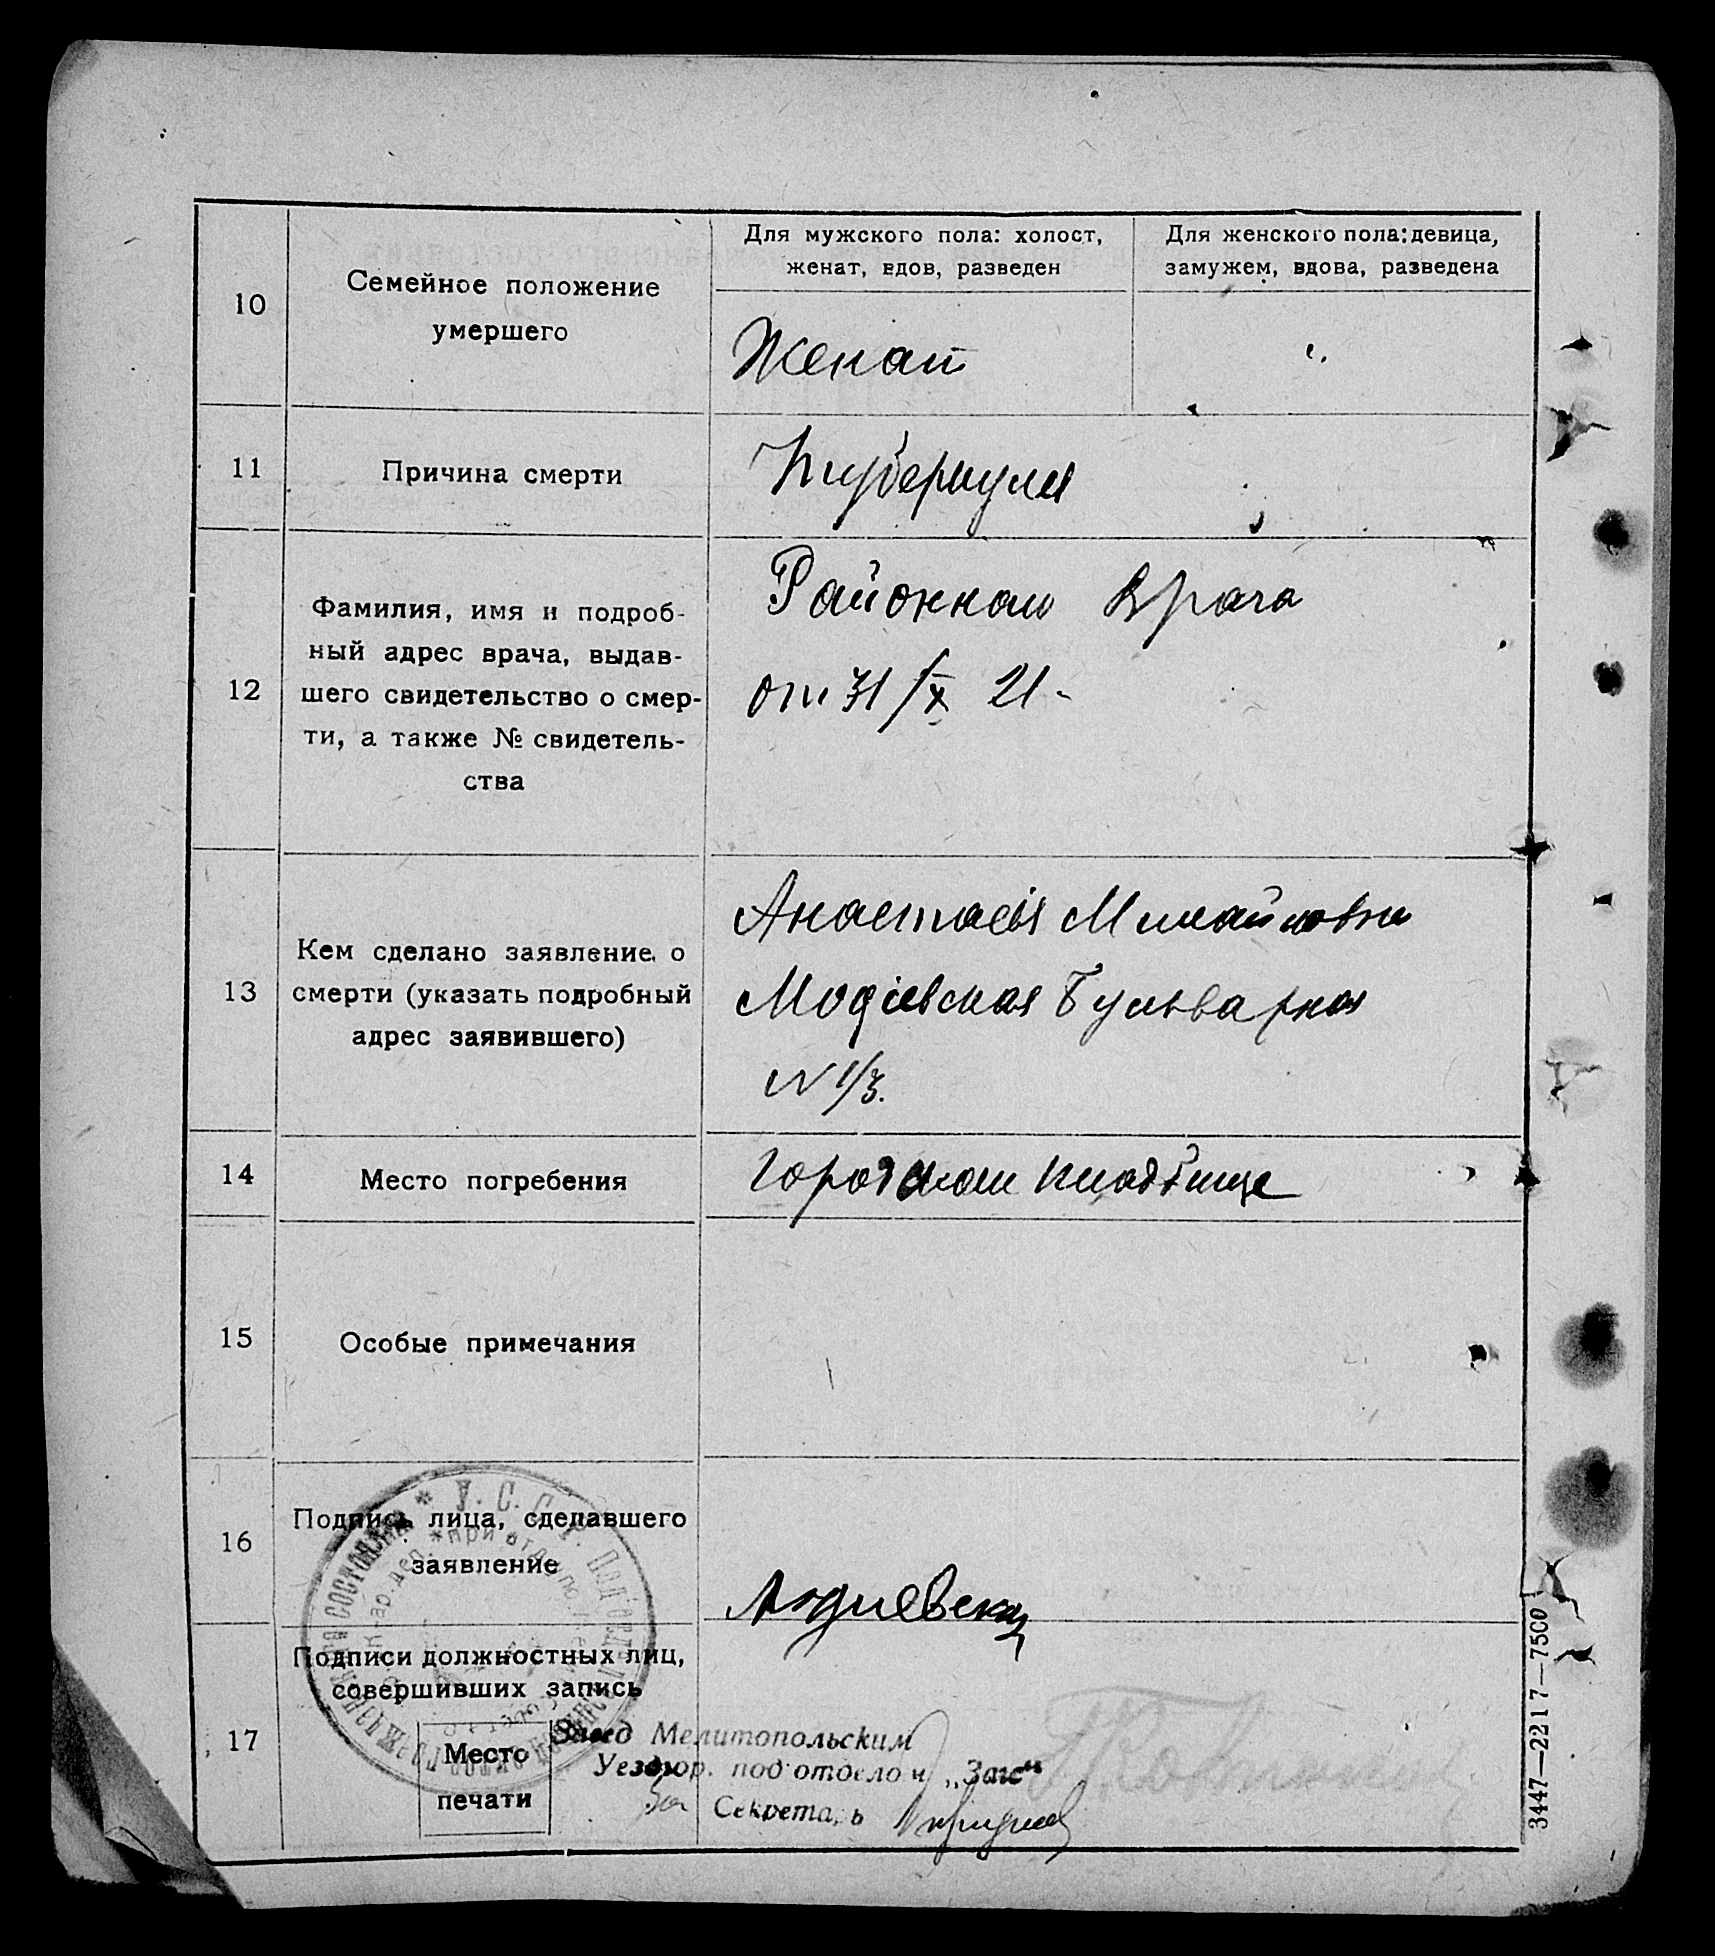 10
Семейное положение
умершего
Для мужского пола: холост,
женат, вдов, разведен
Для женского пола: девица,
замужем, вдова, разведена
Женат
11
Причина смерти
12
Фамилия, имя и подроб-
ный адрес врача, выдав-
шего свидетельство о смер-
ти, а также № свидетель-
ства
Врача
от 31/X 21
13
Кем сделано заявление о
смерти (указать подробный
адрес заявившего)
Анастасія Михайловна
Бульварная
N 1/3.
14
Место погребения
Городском кладбище
15
Особые примечания
16
Подпись лица, сделавшего
заявление
17
Подписи должностных лиц,
совершивших запись
Место
печати
* У. С. С. Р. Под'отдел
состояния
Завед Мелитопольским
Уездгор. под'отделом „Загс“
За Секретарь
3447—2217—7500